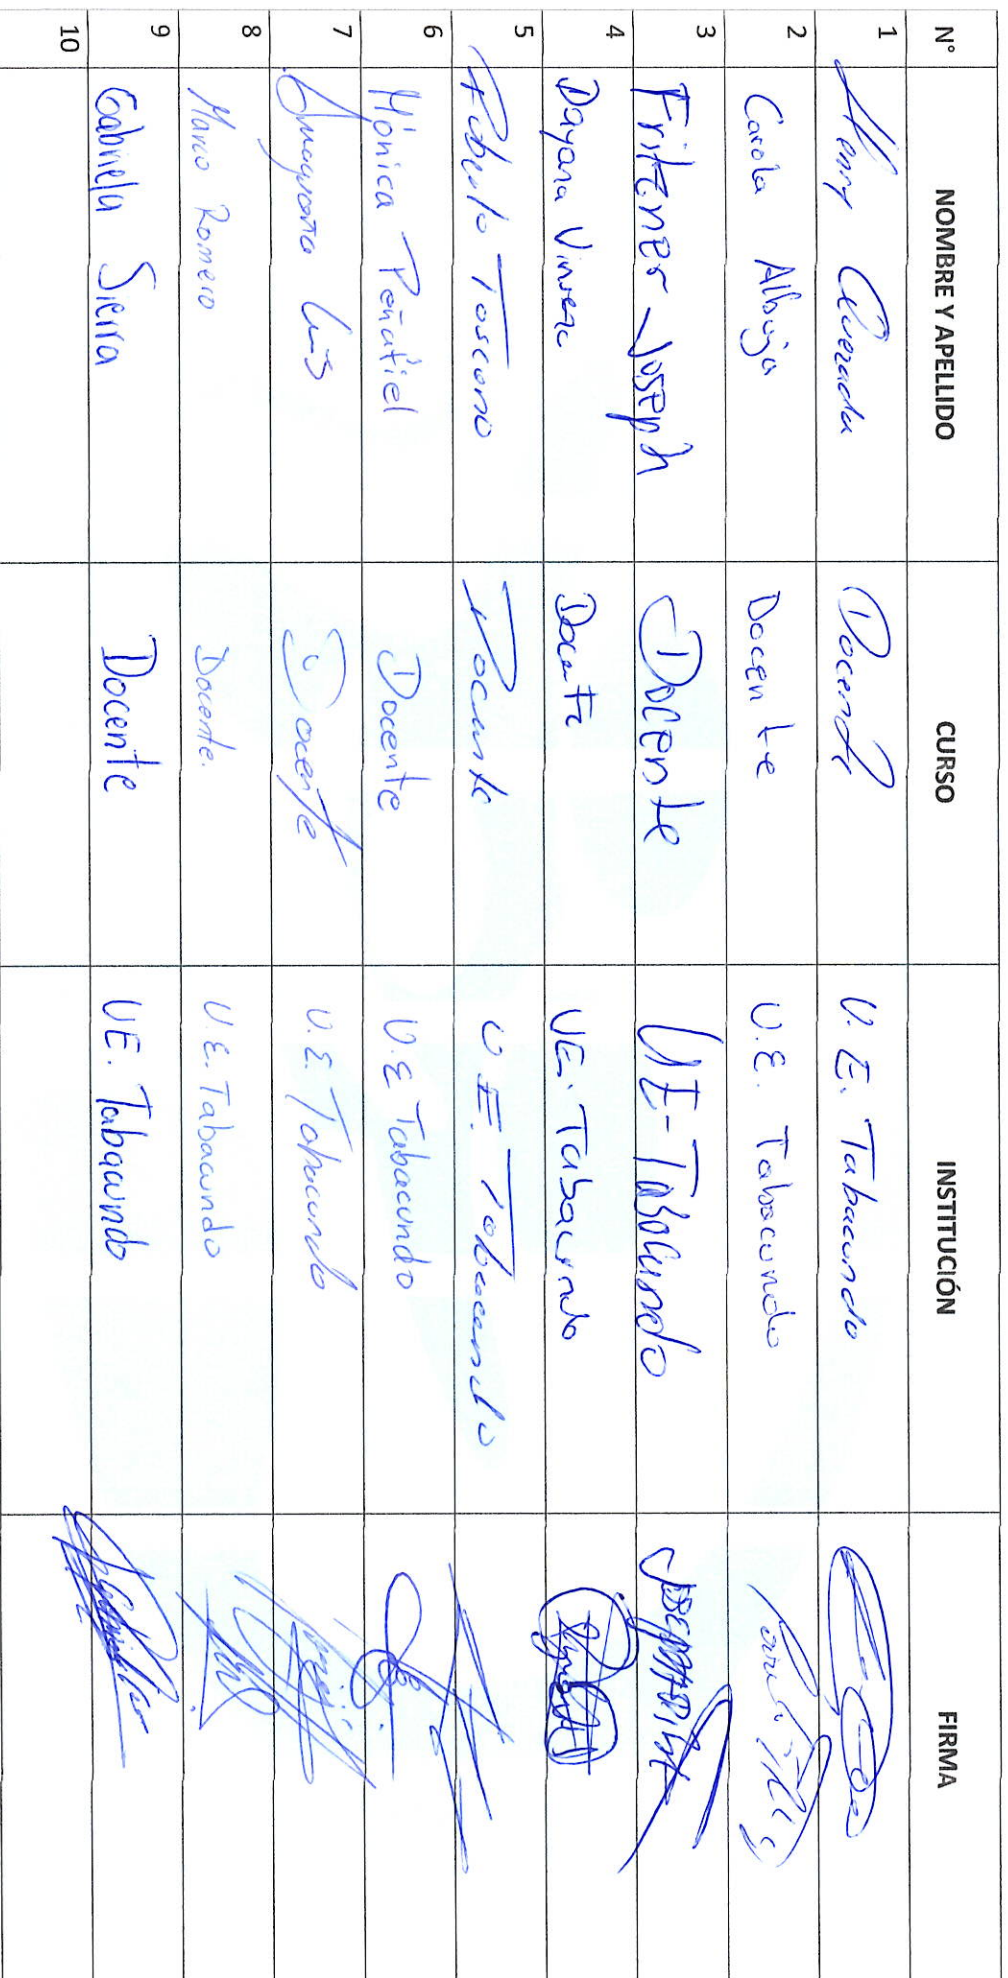 N° NOMBRE Y APELLIDO CURSO INSTITUCIÓN FIRMA
1 Henry Quezada Docente U. E. Tabacundo
2 Carola Albuja Docente U.E. Tabacundo
3 Fritzner Joseph Docente UE-Tabacundo
4 Dayana Docente UE. Tabacundo
5 Roberto Toscano Docente U E. Tabacundo
6 Mónica Peñafiel Docente U.E Tabacundo
7 Luis Docente U.E. Tabacundo
8 Marco Romero Docente. U.E. Tabacundo
9 Gabriela Sierra Docente UE. Tabacundo
10